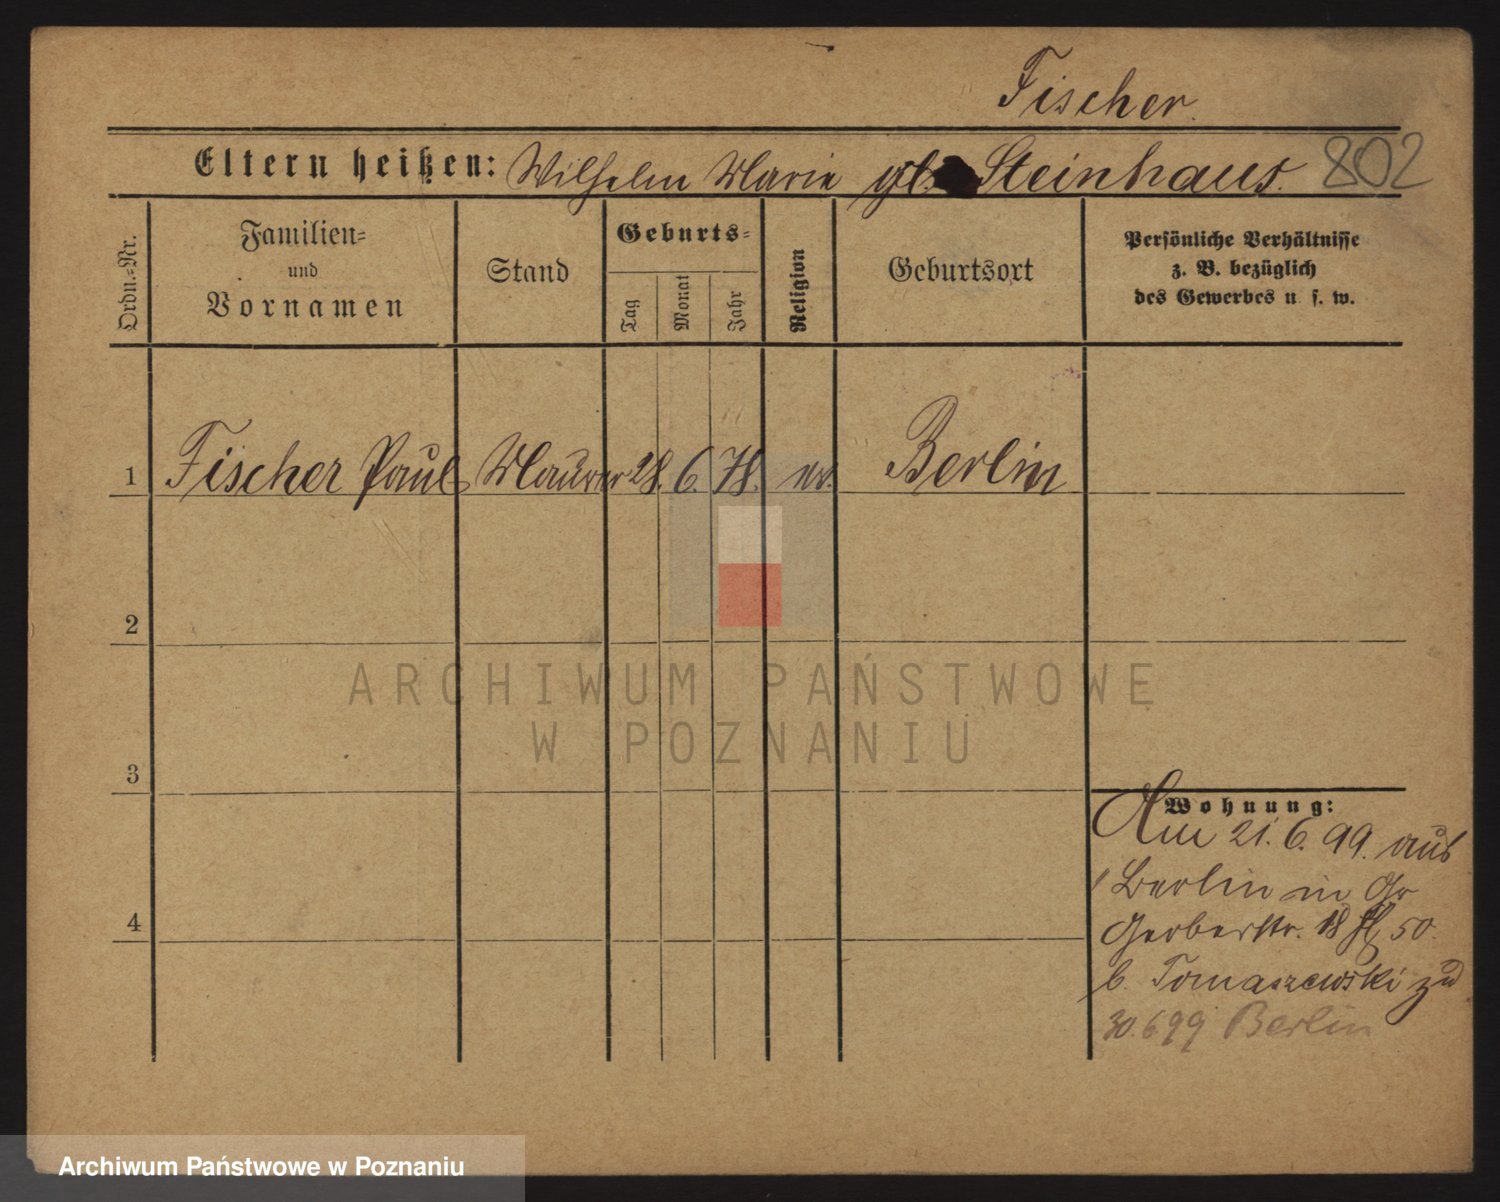 Fischer.
Eltern heißen: Wilhelm Marie gb. Steinhaus. 802
Ordn.-Nr.
Familien- und Vornamen
Stand
Geburts-
Tag
Monat
Jahr
Religion
Geburtsort
Persönliche Verhältnisse
z. B. bezüglich
des Gewerbes u. s. w.
1 Fischer Paul Maurer 28. 6. 78. ev. Berlin
2
3
4
Wohnung:
Am 21. 6. 99. aus
Berlin in Gr
Gerberstr. 18 50.
b. Tomaszewski zu
30.6.99 Berlin
ARCHIWUM PAŃSTWOWE
W POZNANIU
Archiwum Państwowe w Poznaniu